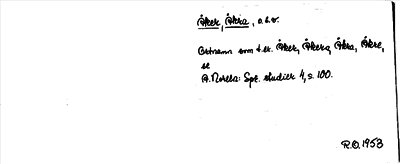 Åker, Åkra, o.s.v.
Ortnamn som t.ex. Åker, Åkera, Åkra, Åkre,
se
A. Noreen: Spr. studier 4, s. 100.
R.O. 1953